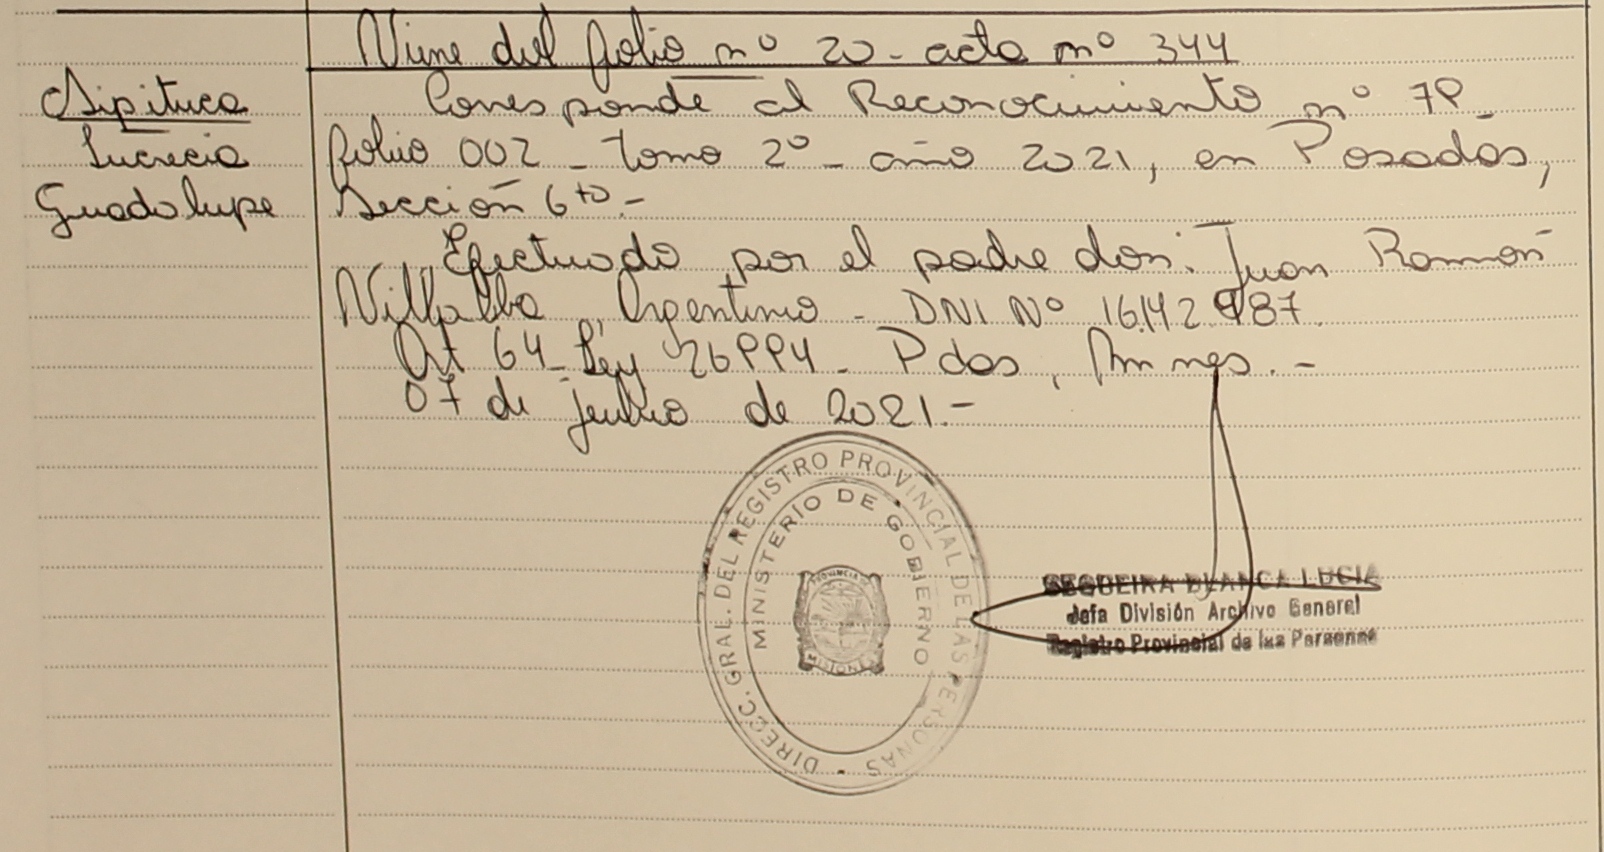 Viene del folio nº 20 - acta nº 344
Sipituca
Lucrecia
Guadalupe
Corresponde al Reconocimiento nº 79
folio 002 - tomo 2º - año 2021, en Posadas,
Sección 6ta.-
Efectuado por el padre don: Juan Ramón
Villalba, Argentino - DNI Nº 16.142.987.
Art 64 - Ley 26994 - Pdas, Mnnes. -
07 de julio de 2021.-
DIRECC. GRAL. DEL REGISTRO PROVINCIAL DE LAS PERSONAS
MINISTERIO DE GOBIERNO
PROVINCIA
MISIONES
SEQUEIRA BLANCA LUCIA
Jefa División Archivo General
Registro Provincial de las Personas